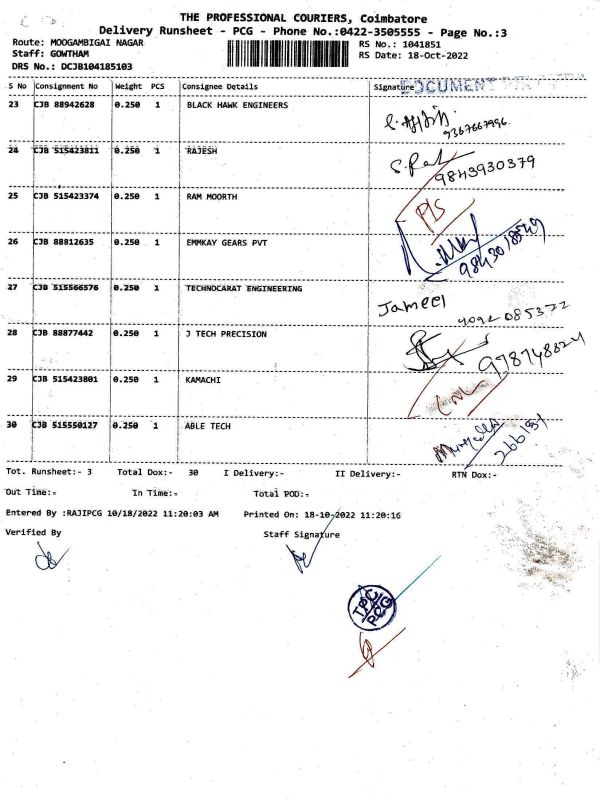 THE PROFESSIONAL COURIERS, Coimbatore
Delivery Runsheet - PCG - Phone No.:0422-3505555 - Page No.:3
Route: MOOGAMBIGAI NAGAR RS No.: 1041851
Staff: GOWTHAM RS Date: 18-Oct-2022
DRS No.: DCJB104185103
S No Consignment No Weight PCS Consignee Details Signature DOCUMENT
23 CJB 88942628 0.250 1 BLACK HAWK ENGINEERS
9367667996
24 CJB 515423811 0.250 1 RAJESH
9843930379
25 CJB 515423374 0.250 1 RAM MOORTH P/S
26 CJB 88812635 0.250 1 EMMKAY GEARS PVT
9843018549
27 CJB 515566576 0.250 1 TECHNOCARAT ENGINEERING Jameel
28 CJB 88877442 0.250 1 J TECH PRECISION
29 CJB 515423801 0.250 1 KAMACHI
30 CJB 515550127 0.250 1 ABLE TECH
Tot. Runsheet:- 3 Total Dox:- 30 I Delivery:- II Delivery:- RTN Dox:-
Out Time:- In Time:- Total POD:-
Entered By :RAJIPCG 10/18/2022 11:20:03 AM Printed On: 18-10-2022 11:20:16
Verified By Staff Signature
TPC
PCG